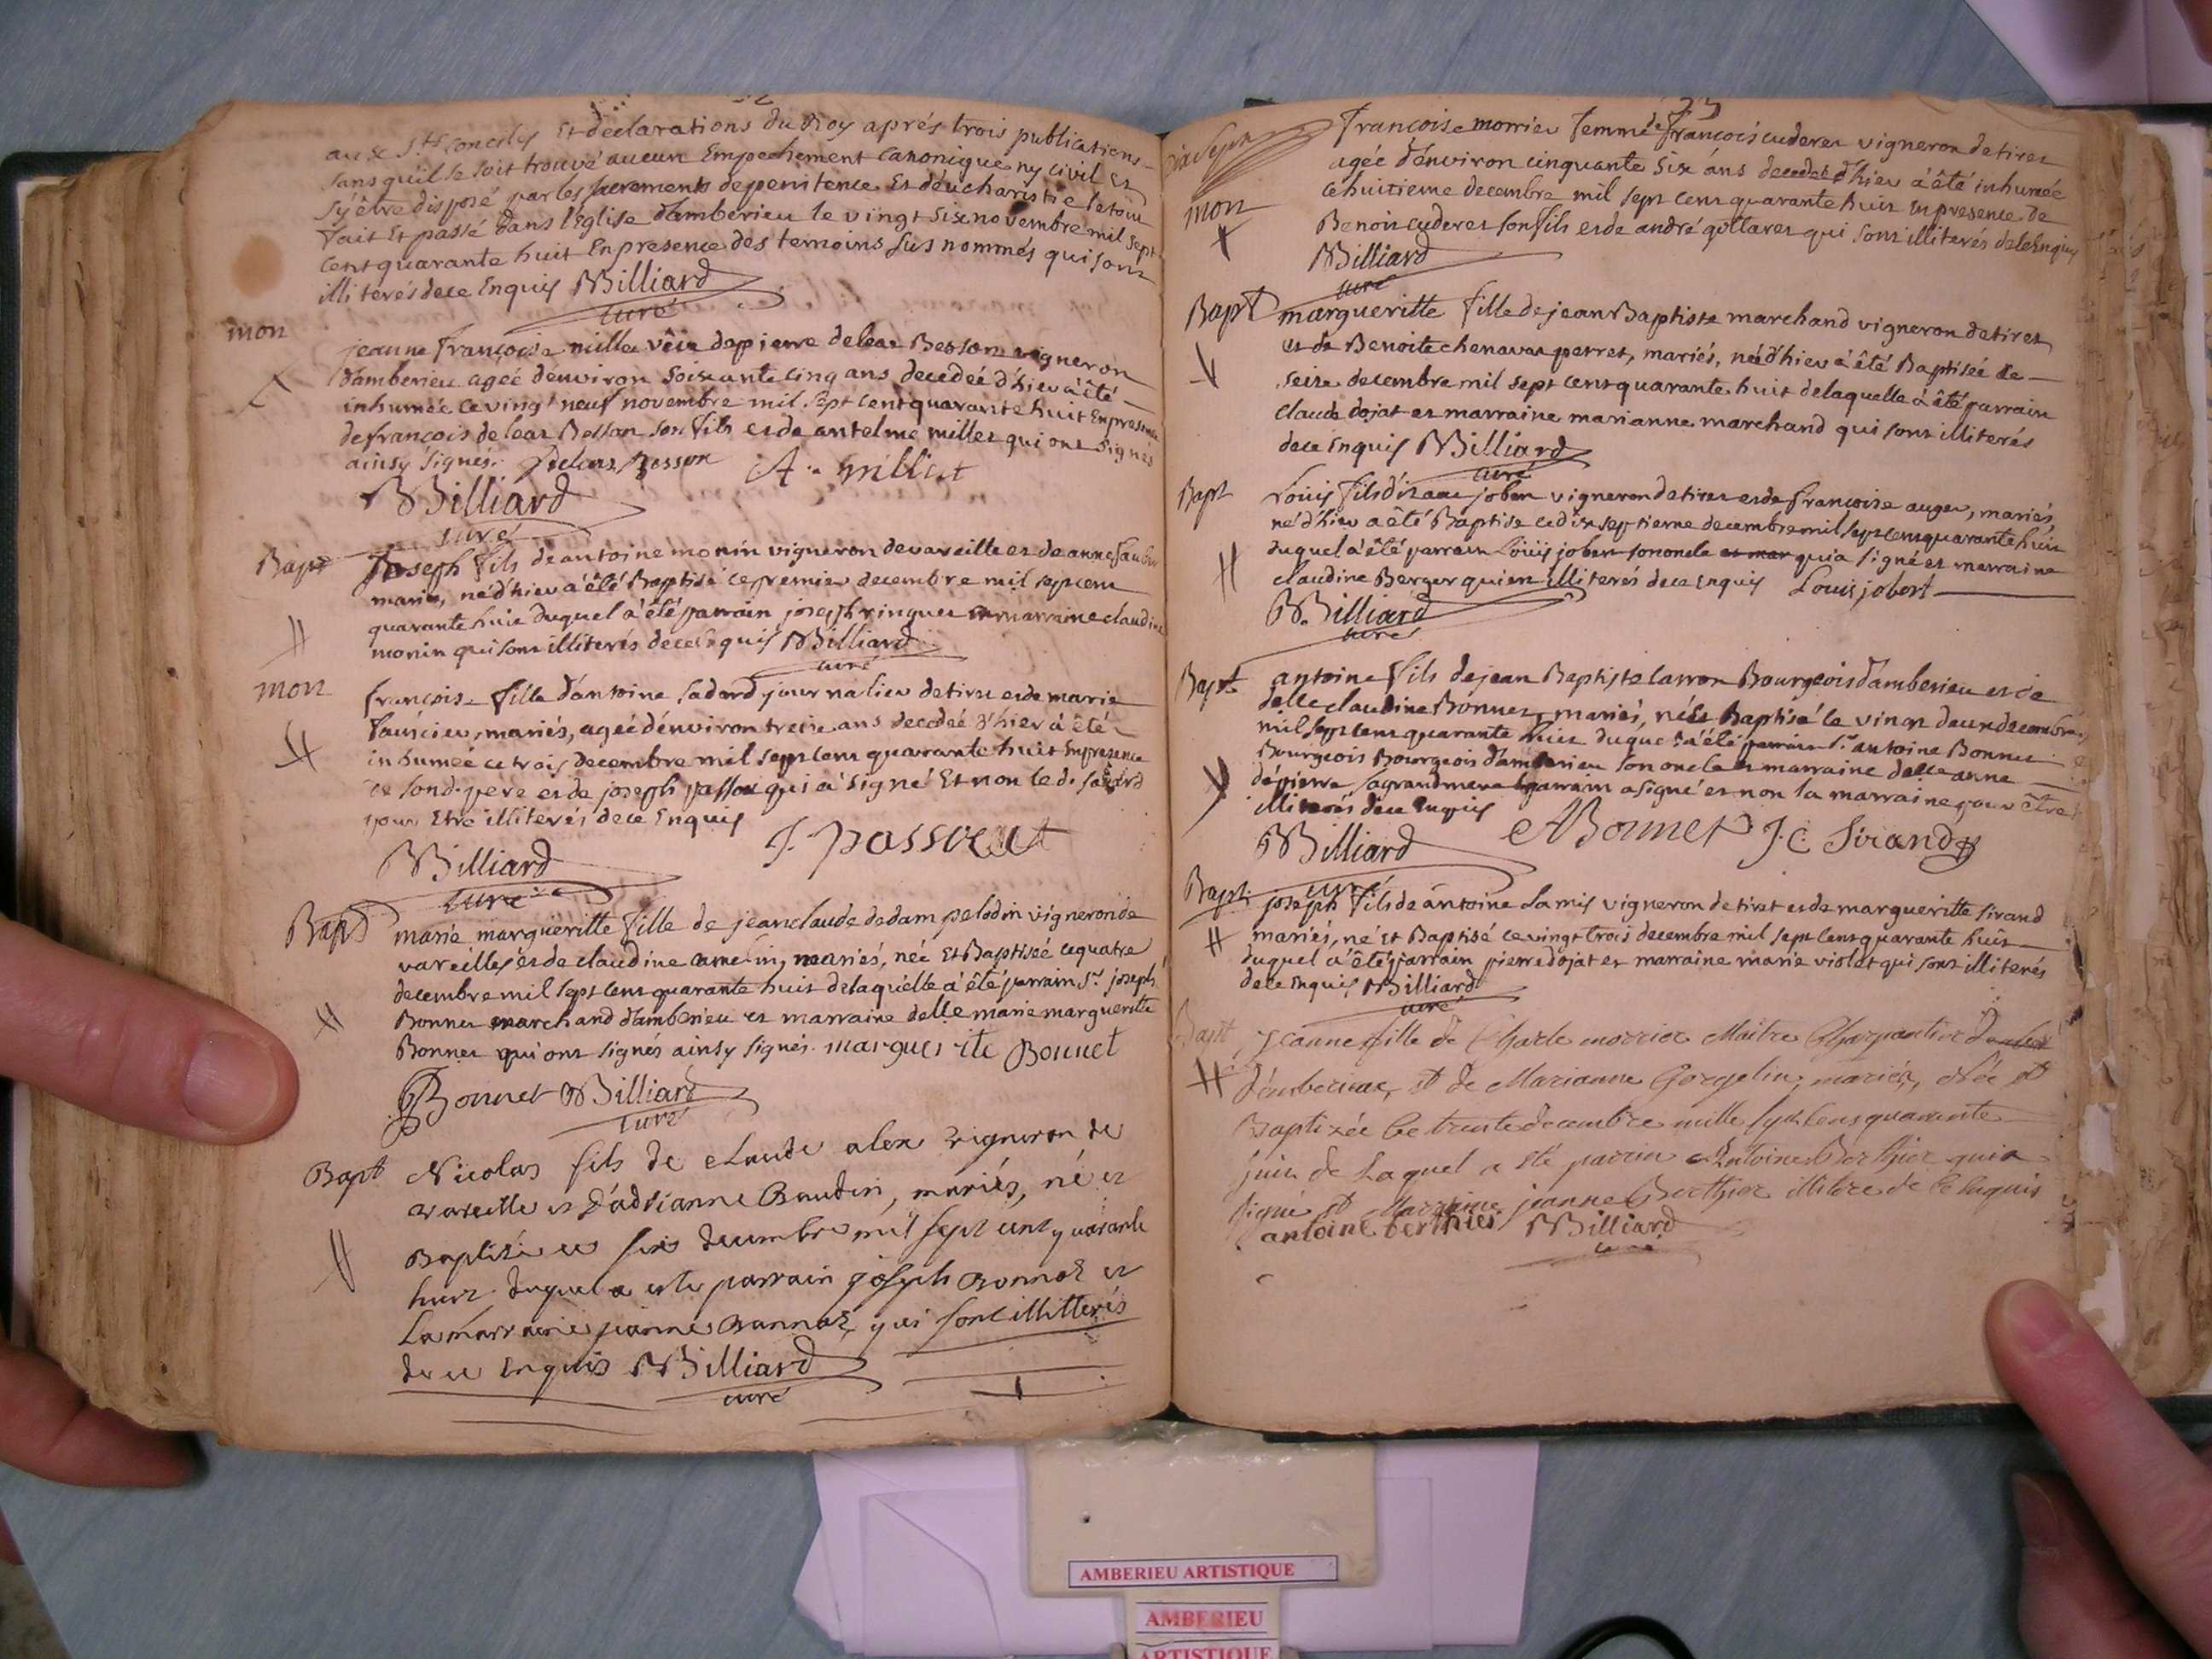 aux Sts conciles Et declarations du Roy aprés trois publications
sans qu'il se soit trouvé aucun Empechement canonique ny civil et
s'y être disposé par les sacrements de penitence Et d'eucharistie le tout
fait Et passé dans l'Eglise d'amberieu le vingt six novembre mil sept
cent quarante huit En presence des temoins sus nommés qui sont
illiterés de ce Enquis Billiard
curé
mort
jeanne françoise millet de pierre deleas Besson vigneron
d'amberieu ageé d'environ soixante cinq ans decedeé d'hier à été
inhumée ce vingt neuf novembre mil sept cent quarante huit En presence
de françois deleas Besson son fils et de antelme millet qui ont signés
ainsy signés. Deleas Besson A. millet
Billiard
curé
Bapt
Joseph fils de antoine monin vigneron de vareille et de anne
mariés, né d'hier à été Baptisé ce premier decembre mil sept cent
quarante huit duquel à été parrain joseph ringuet et marraine claudine
monin qui sont illiterés de ce Enquis Billiard
curé
mort
françoise fille d'antoine sadard journalier de tiret et de marie
mariés, ageé d'environ treize ans decedeé d'hier à été
inhumeé ce trois decembre mil sept cent quarante huit En presence
de son d. pere et de joseph qui à signé Et non le d. sadard
pour Etre illiterés de ce Enquis
J. passerat
Billiard
curé
Bapt
marie marguëritte fille de jean claude dedam pelodin vigneron de
vareilles et de claudine mariés, née Et Baptisée ce quatre
decembre mil sept cent quarante huit de laquelle à été parrain Sr. joseph
Bonnet marchand d'amberieu et marraine delle marie margueritte
Bonnet qui ont signés ainsy signés. marguerite Bonnet
Bonnet Billiard
curé
Bapt
Nicolas fils de claude alex vigneron de
vareille et d'adrianne Baudin, mariés, né et
Baptisé ce six decembre mil sept cent quarante
huit duquel a esté parrain joseph Bonnaz et
La marraine jeanne Bonnaz, qui sont illitterés
de ce enquis Billiard
curé
mort
françoise morrier femme de françois cuderet vigneron de tiret
agée d'environ cinquante six ans decedeé d'hier à êté inhumée
ce huitieme decembre mil sept cent quarante huit En presence de
Benoit cuderet son fils et de andré gottaret qui sont illiterés de ce Enquis
Billiard
curé
Bapt
margueritte fille de jean Baptiste marchand vigneron de tiret
et de Benoite chenavas perret, mariés, née d'hier à été Baptisée ce
seize decembre mil sept cent quarante huit de laquelle à été parrain
claude dojat et marraine marianne marchand qui sont illiterés
de ce Enquis Billiard
curé
Bapt
Loüis fils d'izaac jobert vigneron de tiret et de françoise auger, mariés,
né d'hier a êté Baptisé ce dix septieme decembre mil sept cent quarante huit
duquel à été parrain Loüis jobert son oncle et mar qui a signé et marraine
claudine Berger qui est illiterés de ce Enquis Louis jobert
Billiard
curé
Bapt
antoine fils de jean Baptiste larron Bourgeois d'amberieu et de
delle claudine Bonnet, mariés, né Et Baptisé le vingt deux decembre
mil sept cent quarante huit duquel à été parrain Sr. antoine Bonnet
Bourgeois Bourgeois d'amberieu son oncle et marraine delle anne
depierre sa grand mere le parrain a signé et non la marraine pour être
illiterés de ce Enquis
ABonnet J. C. Sirand
Billiard
curé
Bapt
joseph fils de antoine Lamis vigneron de tiret et de margueritte sirand
mariés, né Et Baptisé ce vingt trois decembre mil sept cent quarante huit
duquel à été parrain pierre dojat et marraine marie violet qui sont illiterés
de ce Enquis Billiard
curé
Bapt
Jeanne fille de Charle morrier Maitre Charpantier
d'emberieux, et de Marianne Gorgelin, mariés, Née et
Baptizée Ce trente decembre mille sept Cens quarante
huit de Laquel a été parrin Antoine Berthier qui a
signé et Marraine jeanne Berthier illitere de Ce enquis
antoine berthier Billiard
curé
AMBERIEU ARTISTIQUE
AMBERIEU
ARTISTIQUE